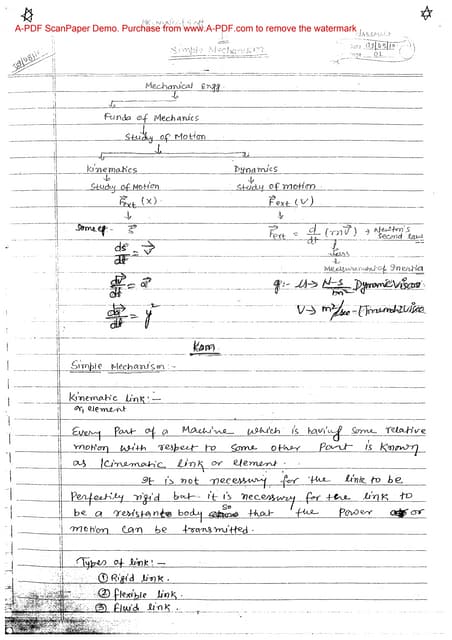 A-PDF ScanPaper Demo. Purchase from www.A-PDF.com to remove the watermark
Simple Mechanism
01
Mechanical Engg
Funda of Mechanics
Study of Motion
Kinematics Dynamics
Study of Motion Study of motion
F⃗ext (x) F⃗ext (✓)
Some eq. s⃗ F⃗ext = d/dt (mv⃗) → Newton's Second law
ds⃗/dt = v⃗ Mass
Measurement of Inertia
dv⃗/dt = a⃗
g:- μ → N-S/m² Dynamic Visco
da⃗/dt = y²
V → m²/sec
Kom
Simple Mechanism:-
Kinematic link:-
or, element
Every Part of a Machine which is having some relative
motion with respect to some other Part is known
as Kinematic link or element.
It is not necessary for the link to be
Perfectily rigid but it is necessary for the link to
be a resistant body so that the Power or
motion can be transmitted.
Types of link:-
① Rigid link.
② flexible link.
③ Fluid link.